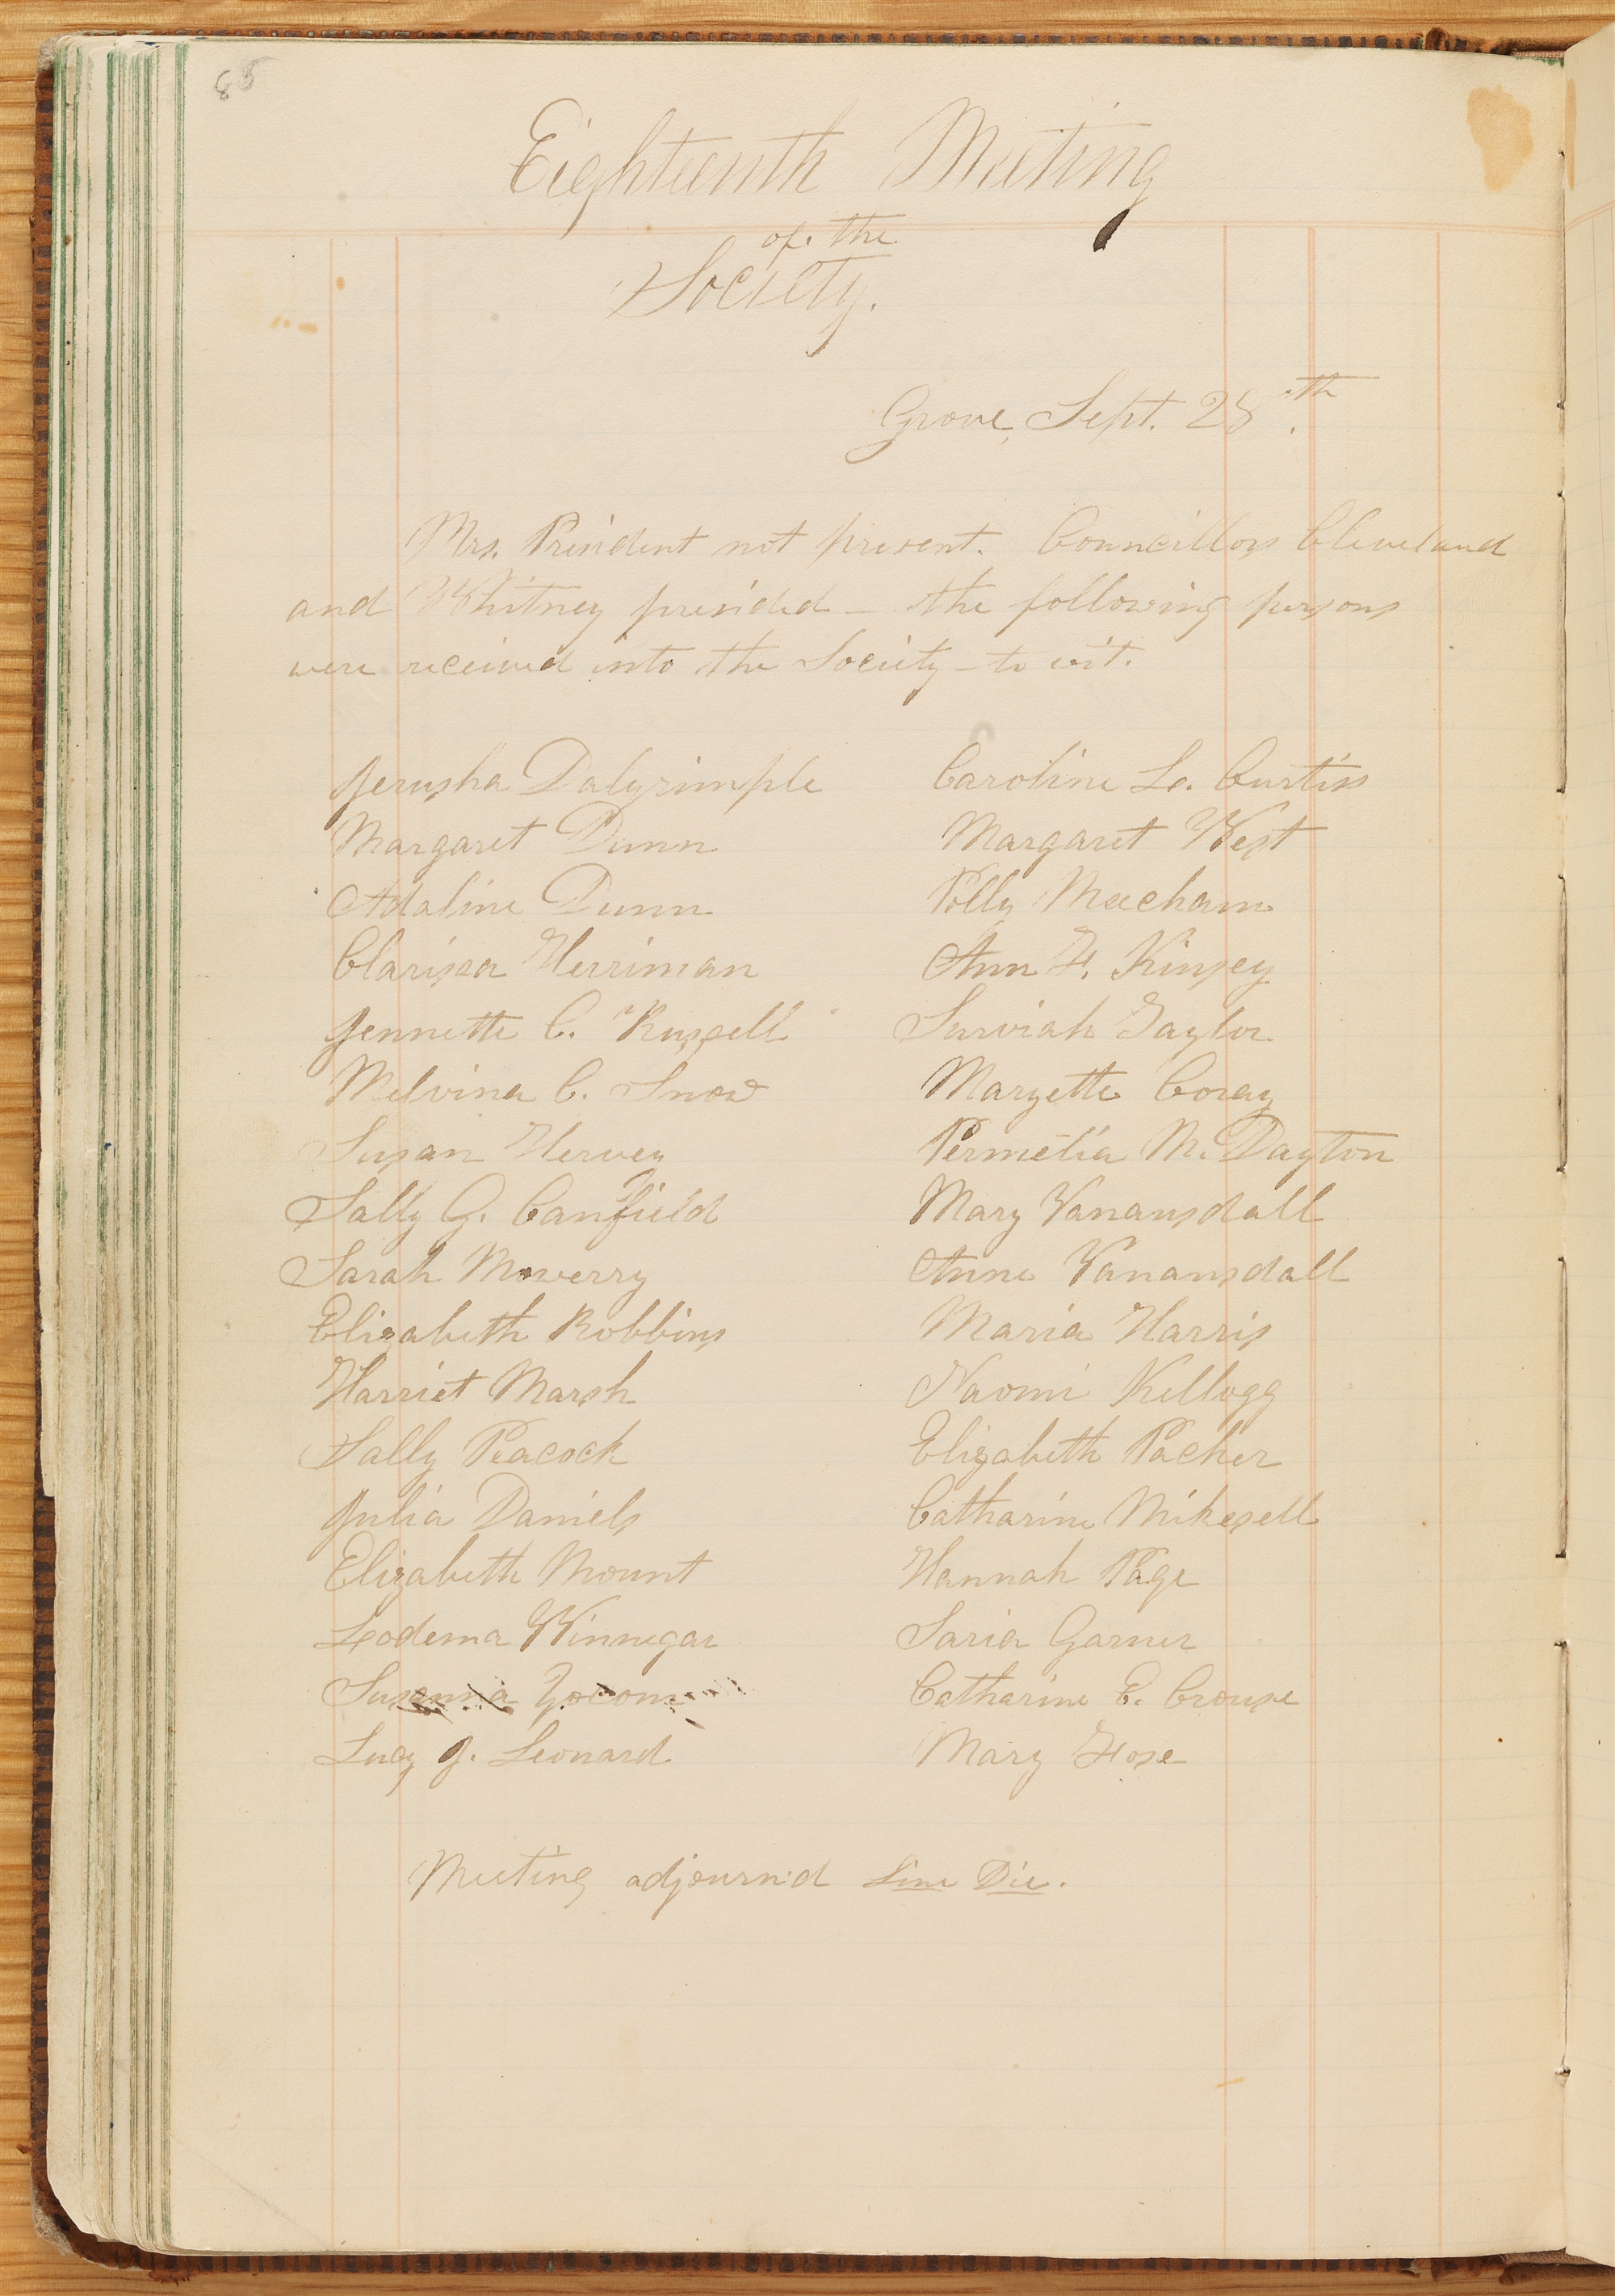 85
Eighteenth Meeting
of the
Society.
Grove, Sept. 28th.
Mrs. President not present. Councillors Cleveland
and Whitney presided — the following persons
were received into the Society — to wit.
Jerusha Dalyrimple
Margaret Dunn
Adaline Dunn
Clarissa Herriman
Jennette C. Russell
Melvina C. Snow
Susan Hervey
Sally G. Canfield
Sarah Mowerry
Elizabeth Robbins
Harriet Marsh
Sally Peacock
Julia Daniels
Elizabeth Mount
Lodema Winnegar
Susanna Yocom
Lucy J. Leonard
Caroline L. Curtiss
Margaret West
Polly Meecham
Ann F. Kinsey
Surviah Taylor
Maryette Coray
Permelia M. Dayton
Mary Vanausdall
Anna Vanausdall
Maria Harris
Naomi Kellogg
Elizabeth Packer
Catharine Mikesell
Hannah Page
Saria Garner
Catharine E. Crouse
Mary Fose
Meeting adjourn'd Sine Die.